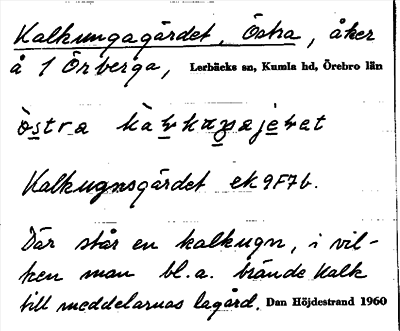 Kalkungagärdet, Östra, åker
å 1 Örberga, Lerbäcks sn, Kumla hd, Örebro län
östra
Kalkugnsgärdet ek 9F7b.
Där står en kalkugn, i vil-
ken man bl.a. brände kalk
till meddelarnas lagård. Dan Höjdestrand 1960